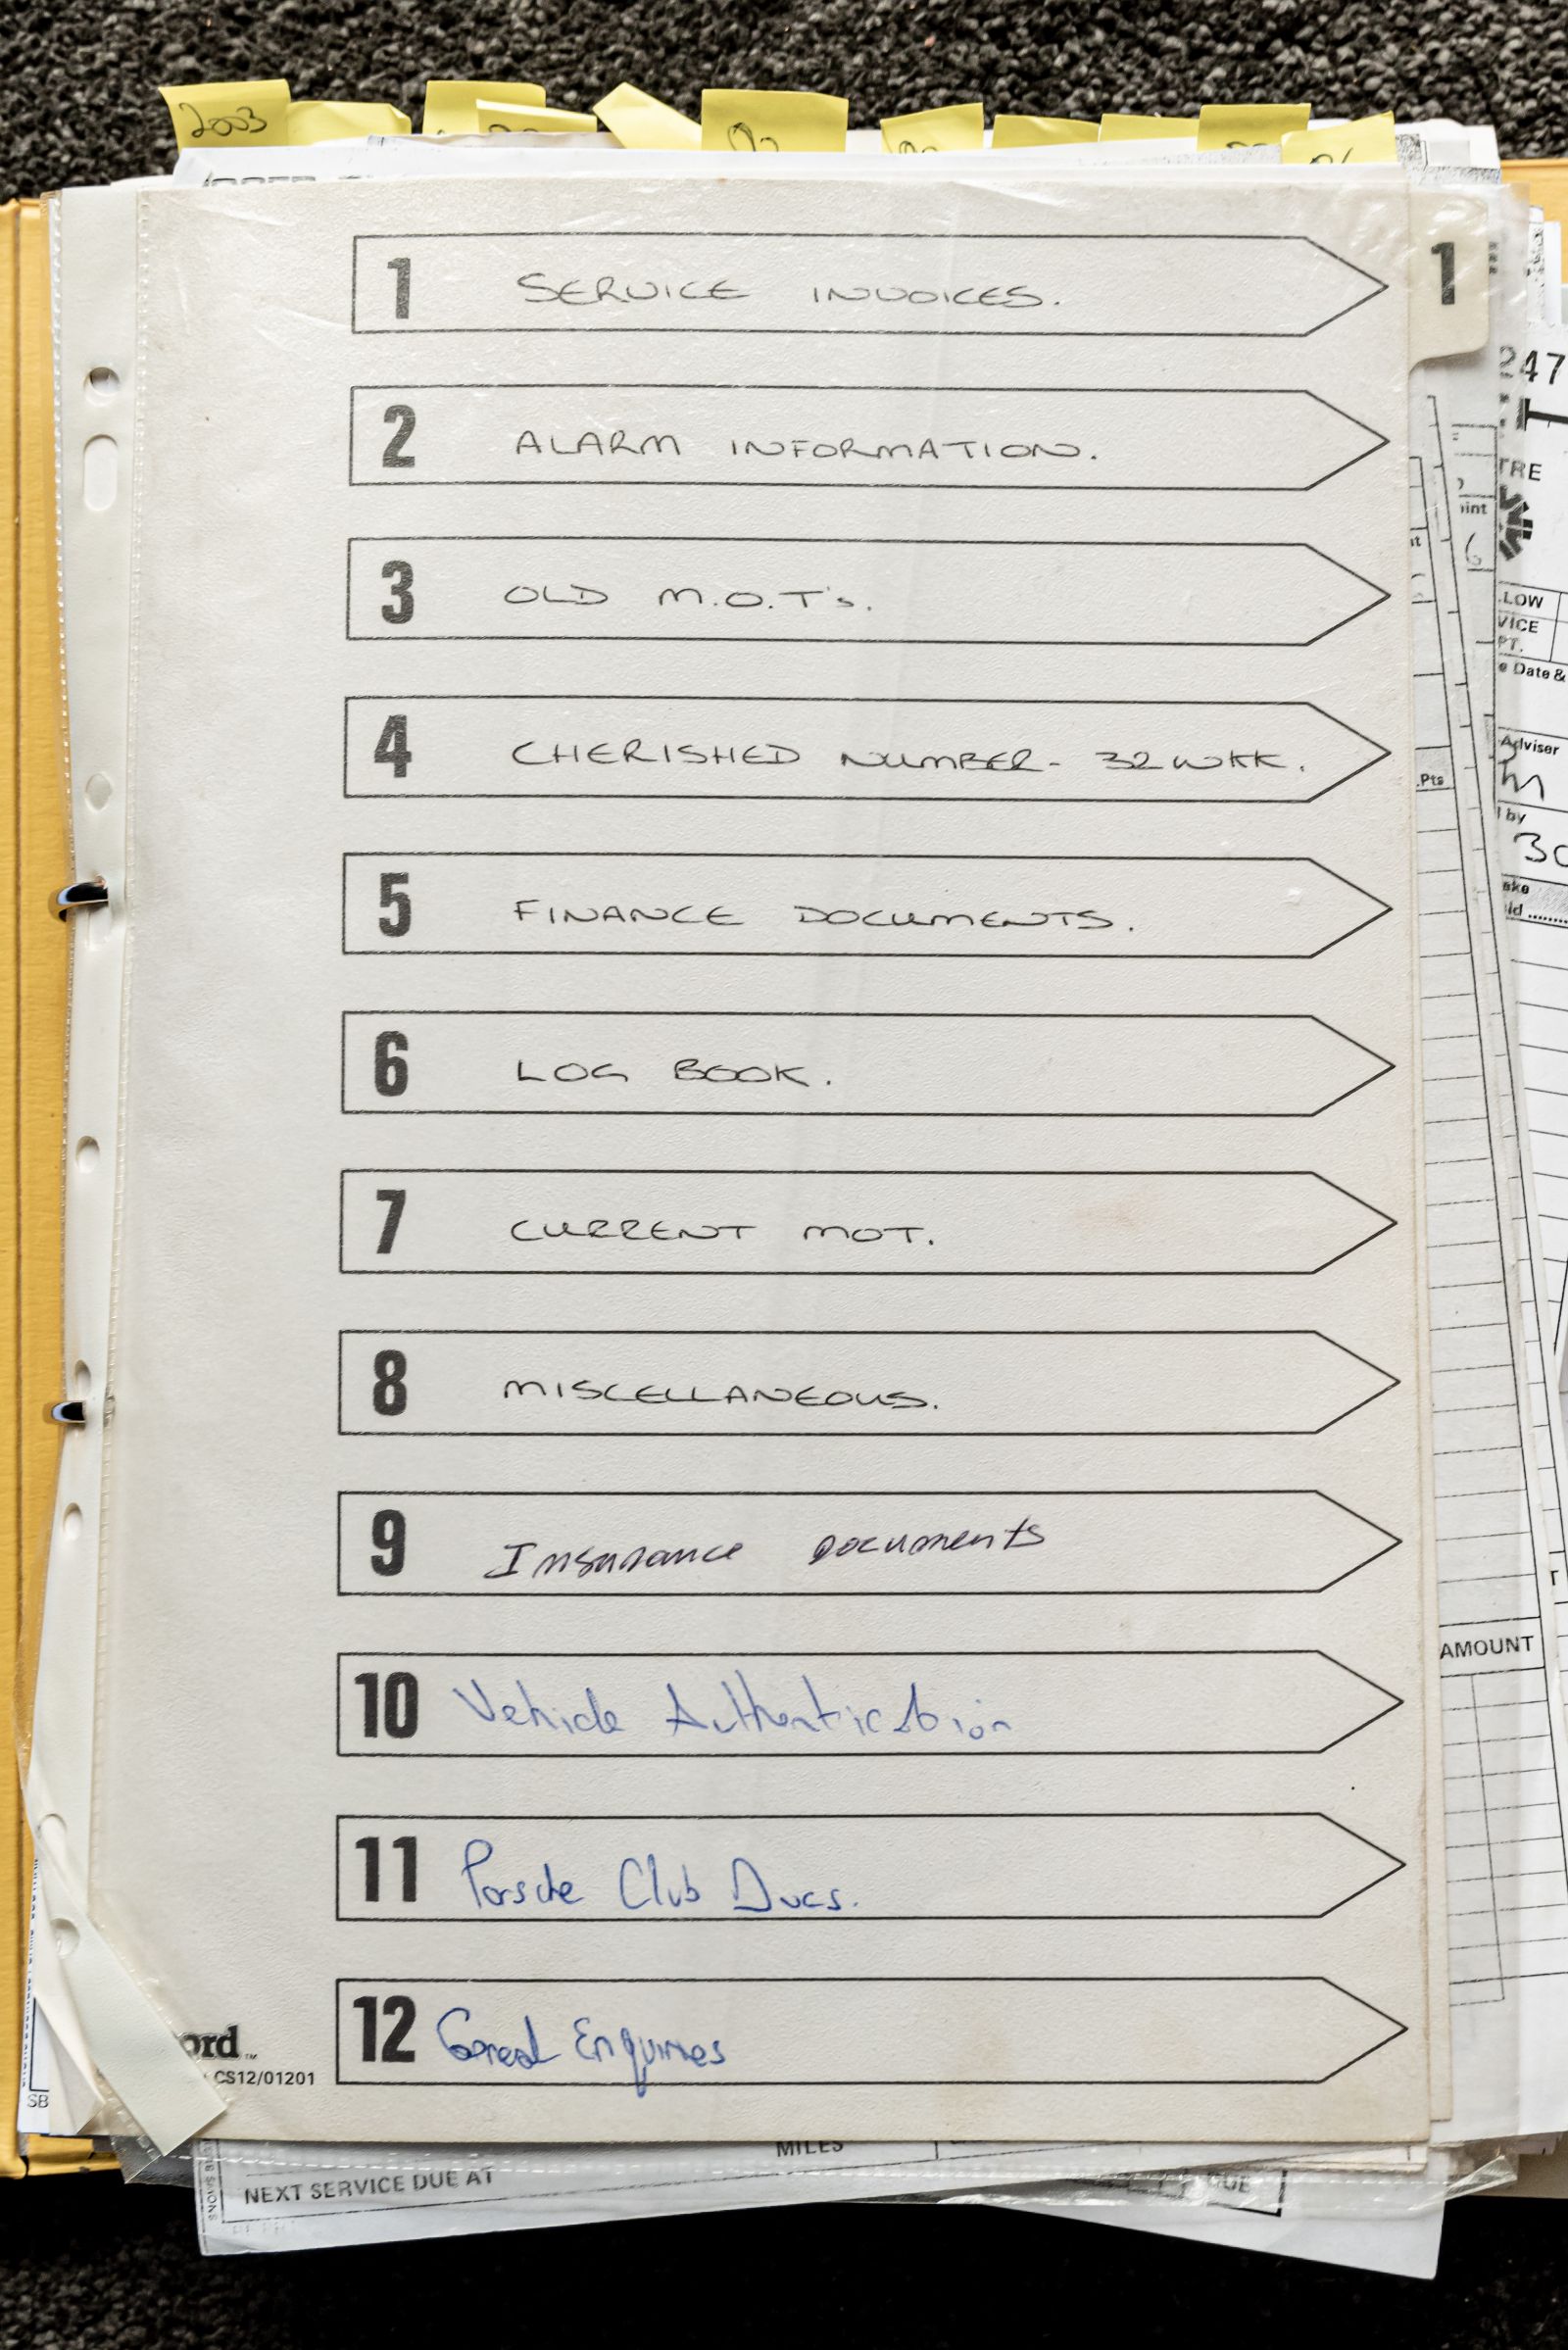 2003
1 SERVICE INVOICES. 1
2 ALARM INFORMATION.
3 OLD M.O.T's.
4 CHERISHED NUMBER - 32 WKK.
5 FINANCE DOCUMENTS.
6 LOG BOOK.
7 CURRENT MOT.
8 MISCELLANEOUS.
9 Insurance Documents
10 Vehicle Authentication
11 Porsche Club Docs.
12 General Enquiries
CS12/01201
247
TRE
LOW
VICE
PT.
e Date &
Adviser
.Pts
by
30
AMOUNT
SB
MILES
NEXT SERVICE DUE AT